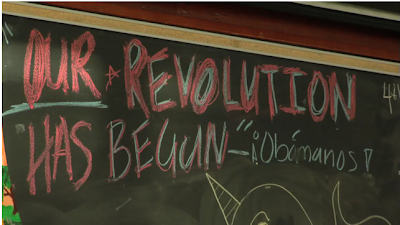 OUR REVOLUTION
"HAS BEGUN" - ¡Obámanos!